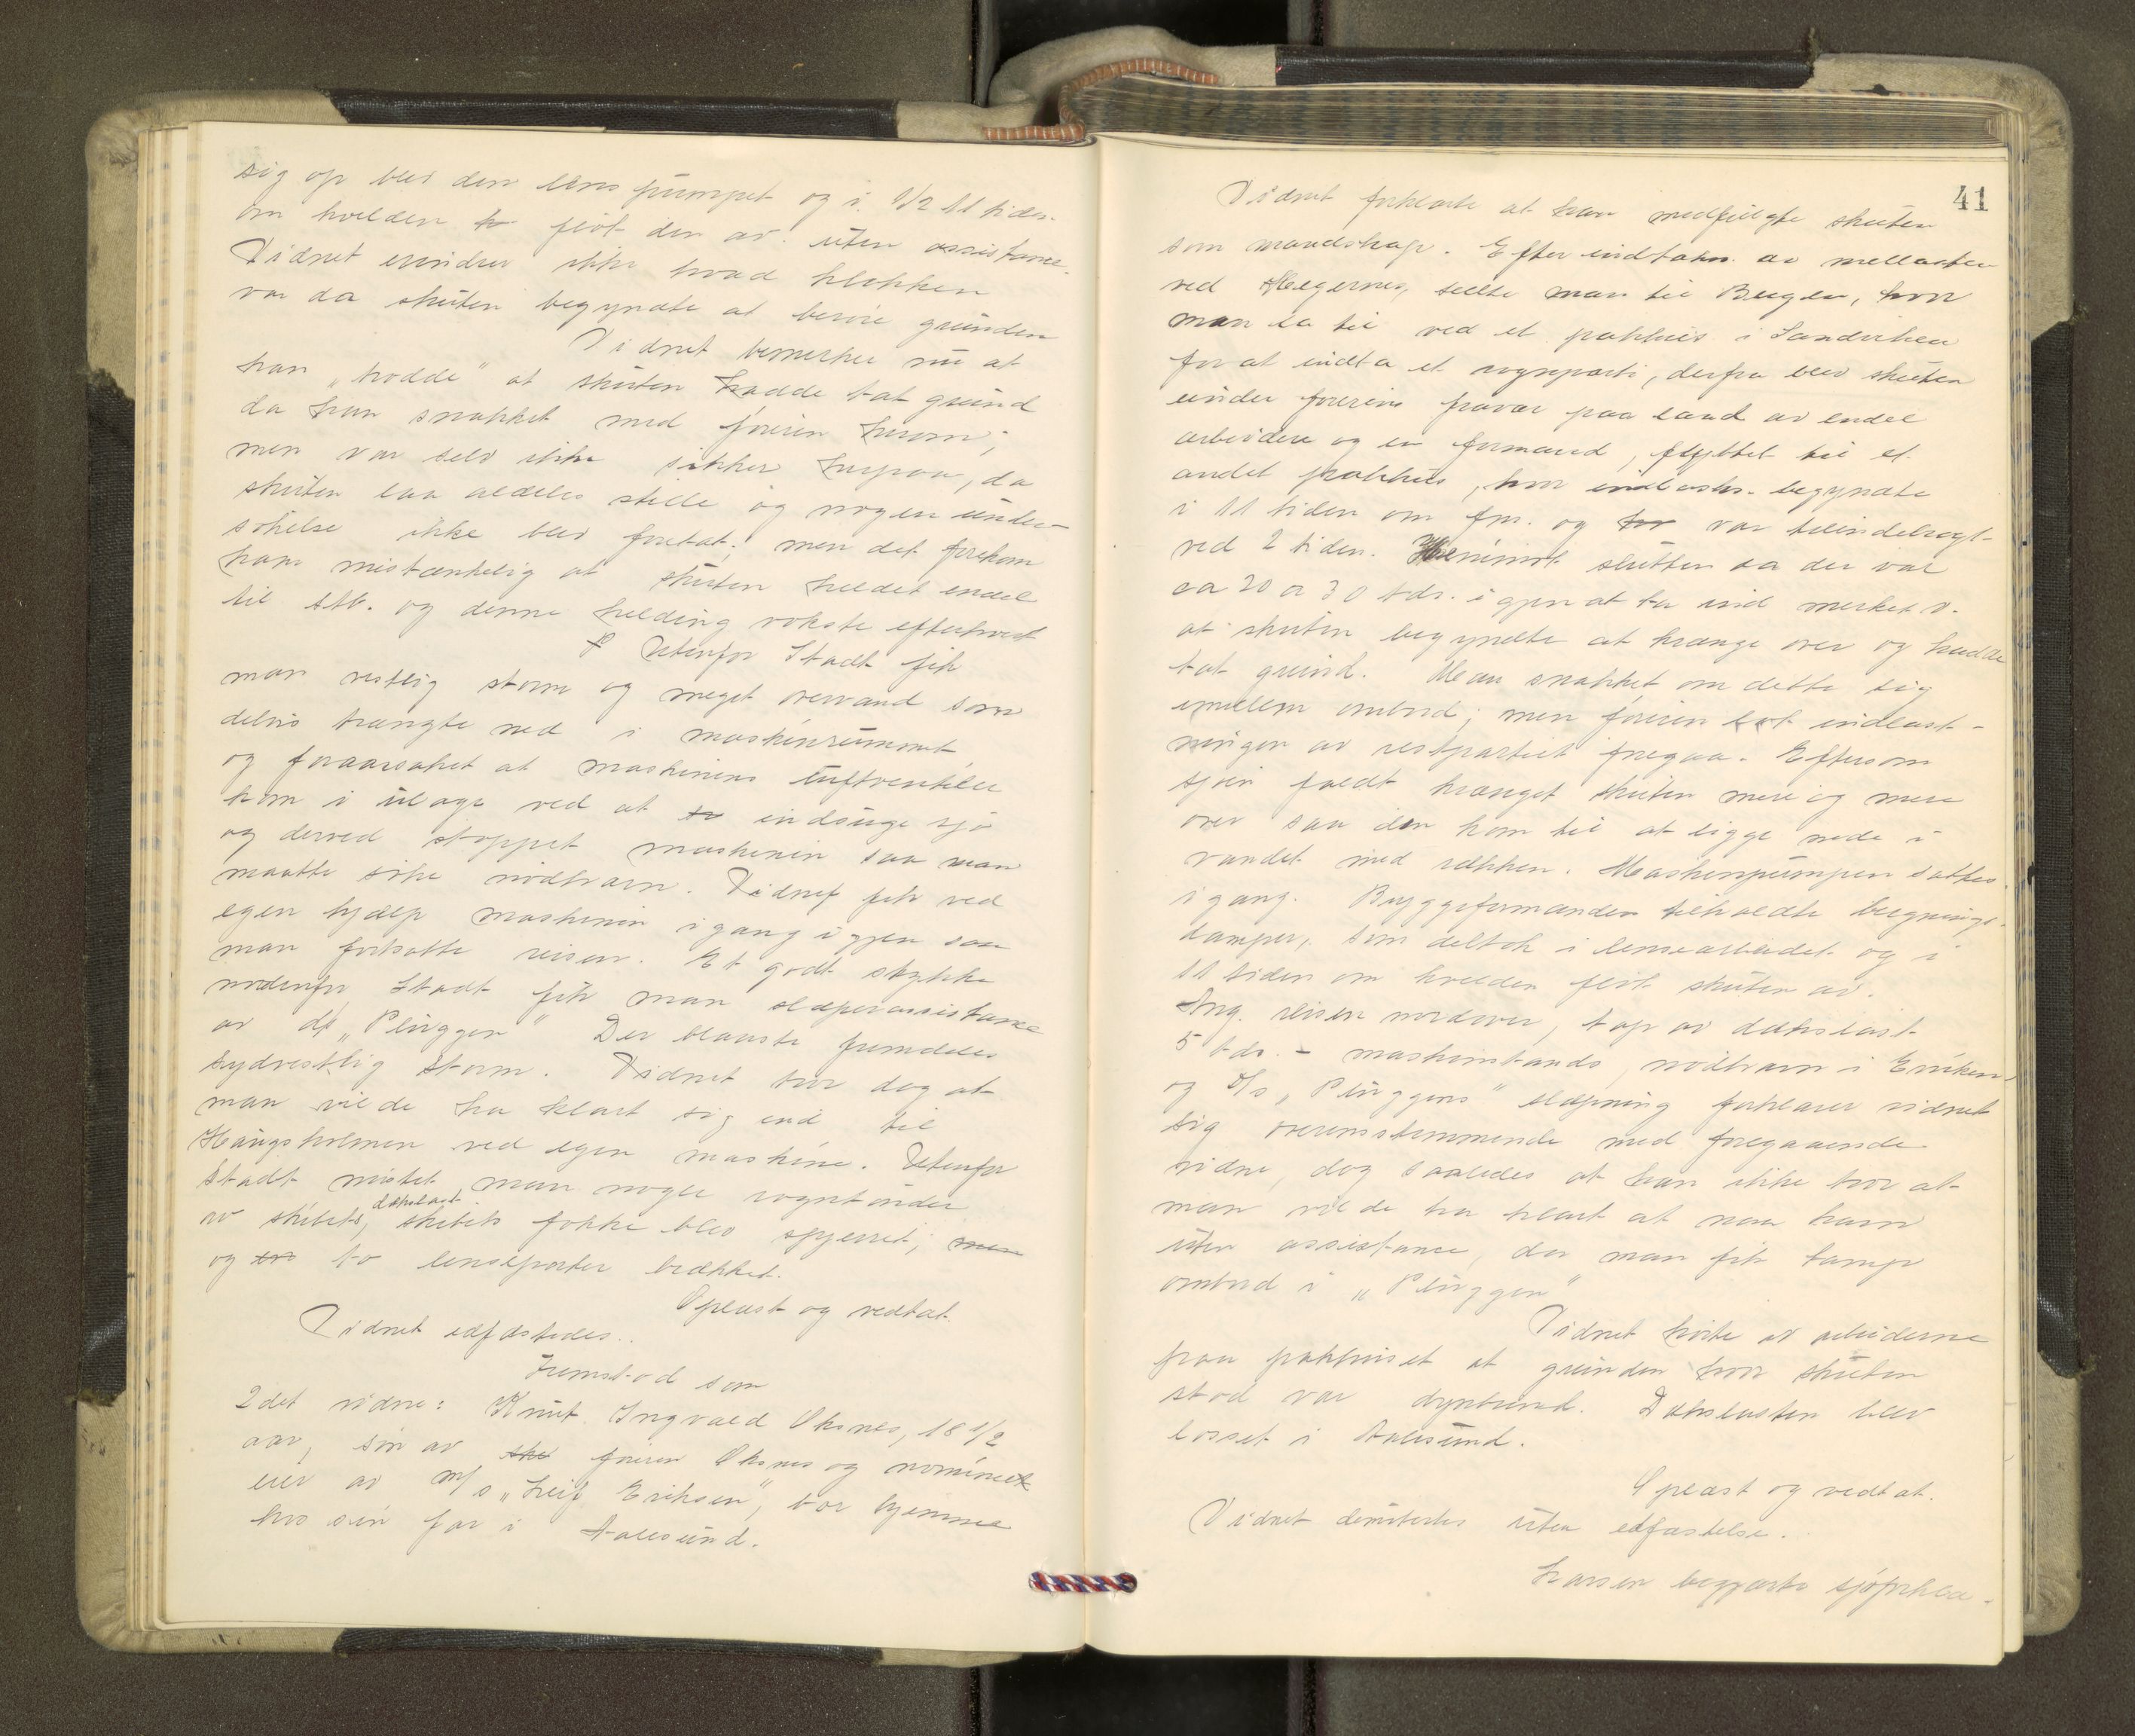 sig op blev den lens pumpet og i 1/2 11 tiden
om kvelden flöt den av uten assistance.
Vidnet erindrer ikke hvad klokken
var da skuten begyndte at beröre grunden
Vidnet bemerker nu at
han "trodde" at skuten hadde tat grund
da han snakket med föreren herom;
men var selv ikke sikker herpaa, da
skuten laa aldeles stille og nogen under-
sökelse ikke blev foretat; men det forekom
ham mistænkelig at skuten heldet endel
til stb. og denne helding vokste efterhvert
Utenfor Stadt fik
man vestlig storm og meget overvand som
delvis trængte ned i maskinrummet,
og foraarsaket at maskinens luftventiler
kom i ulage ved at indsuge sjö
og derved stoppet maskinen saa man
maatte söke nödhavn. Vidnet fik ved
egen hjælp maskinen igang igjen saa
man fortsatte reisen. Et godt stykke
nordenfor Stadt fik man slæpeassistance
av ds "Pluggen" Der blaaste fremdeles
sydvestlig storm. Vidnet tror dog at
man vilde ha klart sig ind til
Haugsholmen ved egen maskine. Utenfor
Stadt mistet man nogle vogntönder
av skibets dækslast, skibets fokke blev spjerret; men
og to lenseporter brækket.
Oplæst og vedtat.
Vidnet edfæstedes.
Fremstod som
2det vidne: Knut Ingvald Oksnes, 18 1/2
aar, sön av föreren Oksnes og nominel
eier av M/s "Leif Eriksen", bor hjemme
hos sin far i Aalesund.
41
Vidnet forklarte at han medfulgte skuten
som mandskap. Efter indtakn. av mellasten
ved Hegernes, seilte man til Bergen, hvor
man la til ved et pakhus i Sandviken
for at indta et rognparti, derfra blev skuten
under förerens fravær paa land av endel
arbeidere og en formand, flyttet til et
andet pakhus, hvor indlastn. begyndte
i 11 tiden om fm. og var tilendebragt
ved 2 tiden. Henimot slutten da der var
ca 20 a 30 tdr. igjen at ta ind merket v.
at skuten begyndte at krænge over og hadde
tat grund. Man snakket om dette sig
imellem ombord; men föreren lot indlast-
ningen av restpartiet foregaa. Eftersom
sjöen faldt krænget skuten mere og mere
over saa den kom til at ligge nede i
vandet med rækken. Maskinpumpen sattes
igang. Bryggeformanden tilkaldte bergnings-
damper, som deltok i lensearbeidet og i
11 tiden om kvelden flöt skuten av.
Ang. reisen nordover, tap av dækslast
5 tdr. - maskinstands, nödhavn i
og D/s "Pluggens" slæpning forklarer vidnet
sig overensstemmende med foregaaende
vidne, dog saaledes at han ikke tror at
man vilde ha klart at naa havn
uten assistance, da man fik tamp
ombord i "Pluggen"
Vidnet hörte av arbeiderne
paa pakhuset at grunden hvor skuten
stod var dyntbund. Dækslasten blev
losset i Aalesund.
Oplæst og vedtat.
Vidnet dimitertes uten edfæstelse.
Larsen begjærte sjöforkla-